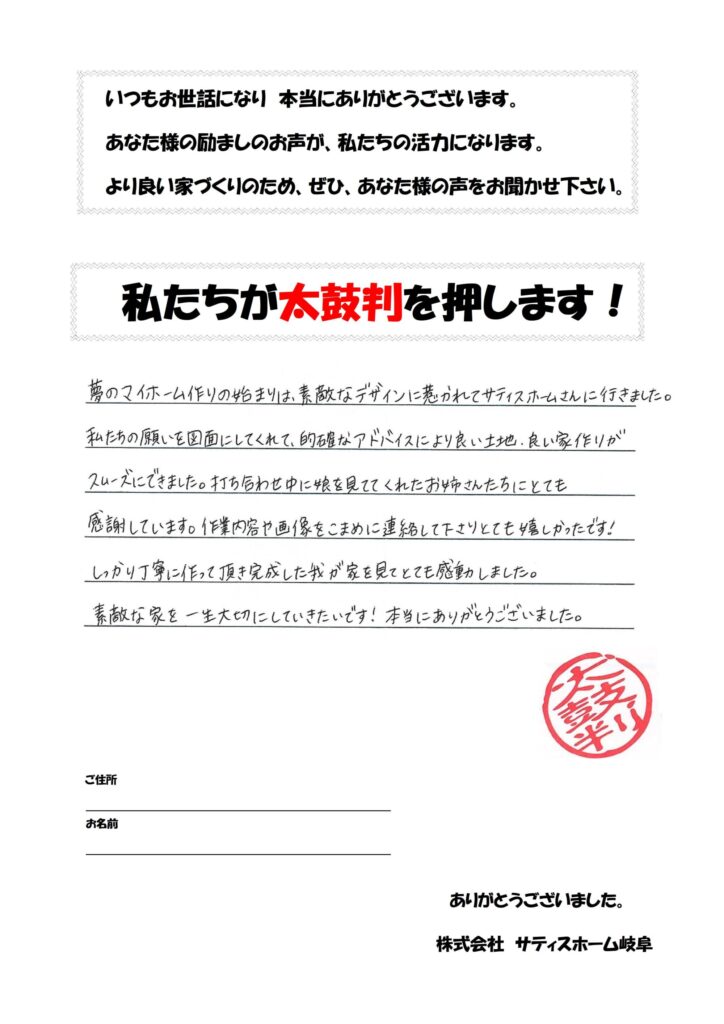 いつもお世話になり 本当にありがとうございます。
あなた様の励ましのお声が、私たちの活力になります。
より良い家づくりのため、ぜひ、あなた様の声をお聞かせ下さい。
私たちが太鼓判を押します！
夢のマイホーム作りの始まりは、素敵なデザインに惹かれてサティスホームさんに行きました。
私たちの願いを図面にしてくれて、的確なアドバイスにより良い土地、良い家作りが
スムーズにできました。打ち合わせ中に娘を見ててくれたお姉さんたちにとても
感謝しています。作業内容や画像をこまめに連絡して下さりとても嬉しかったです！
しっかり丁寧に作って頂き完成した我が家を見てとても感動しました。
素敵な家を一生大切にしていきたいです！本当にありがとうございました。
太鼓判
ご住所
お名前
ありがとうございました。
株式会社 サティスホーム岐阜